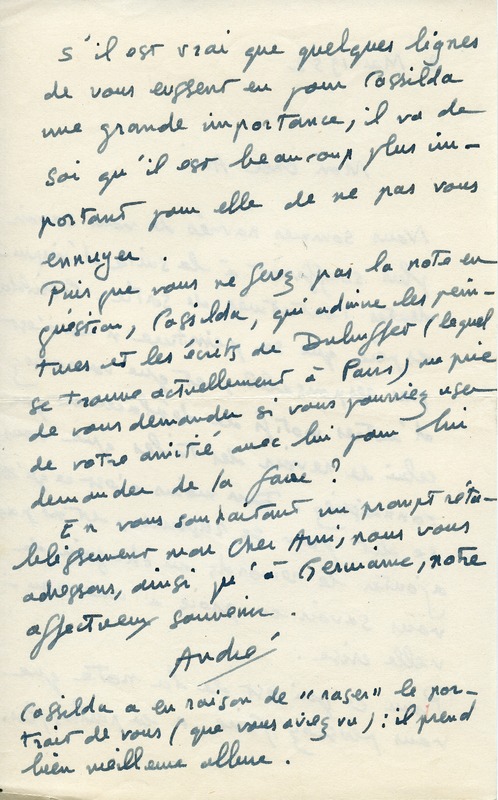 s'il est vrai que quelques lignes
de vous eussent eu pour Cassilda
une grande importance, il va de
soi qu'il est beaucoup plus im-
portant pour elle de ne pas vous
ennuyer.
Puis que vous ne ferez pas la note en
question, Cassilda, qui admire les pein-
tures et les écrits de Dubuffet (lequel
se trouve actuellement à Paris), me prie
de vous demander si vous pourriez user
de votre amitié avec lui pour lui
demander de la faire?
En vous souhaitant un prompt réta-
blissement mon Cher Ami, nous vous
adressons, ainsi qu'à Germaine, notre
affectueux souvenir.
André
Cassilda a eu raison de "raser" le por-
trait de vous (que vous aviez vu): il prend
bien meilleure allure.